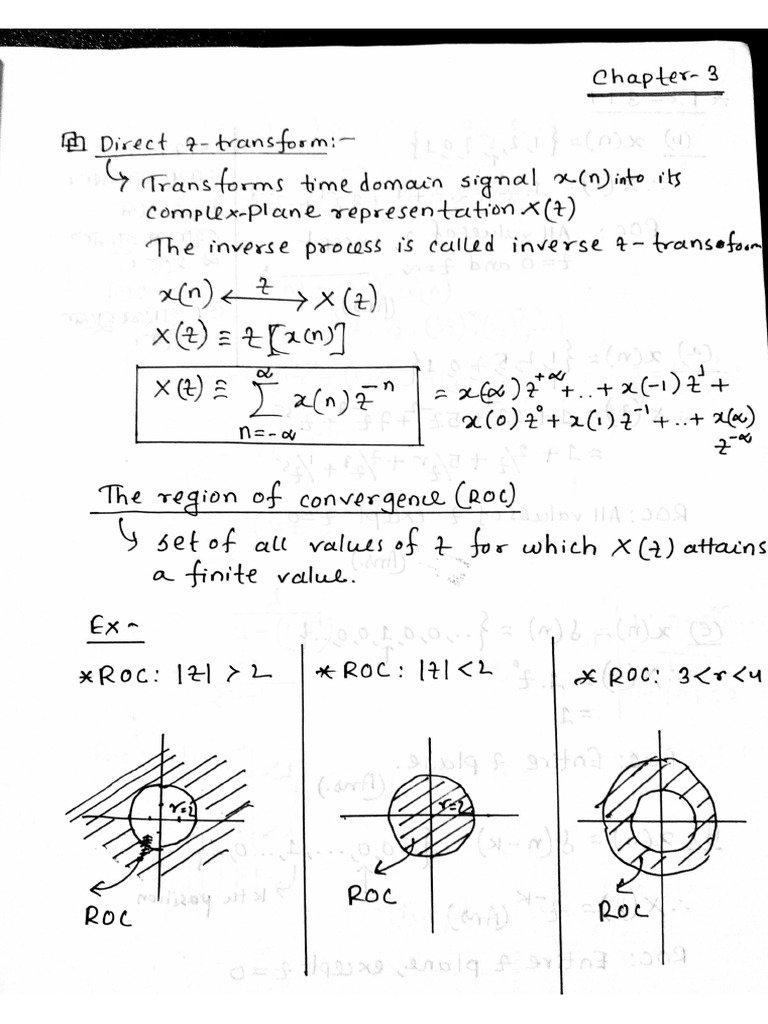 Chapter-3
Direct z-transform:-
↳ Transforms time domain signal x(n) into its
complex-plane representation X(z)
The inverse process is called inverse z-transform
x(n) ←z→ X(z)
X(z) ≡ Z[x(n)]
X(z) ≡ ∑_{n=-∝}^{∝} x(n) z^{-n} = x(∝) z^{+∝} + .. + x(-1) z^1 +
x(0) z^0 + x(1) z^{-1} + .. + x(∝)
z^{-∝}
The region of convergence (ROC)
↳ set of all values of z for which X(z) attains
a finite value.
Ex-
*ROC: |z| > 2
*ROC: |z| < 2
* ROC: 3<r<4
r=2
r=2
ROC
ROC
ROC